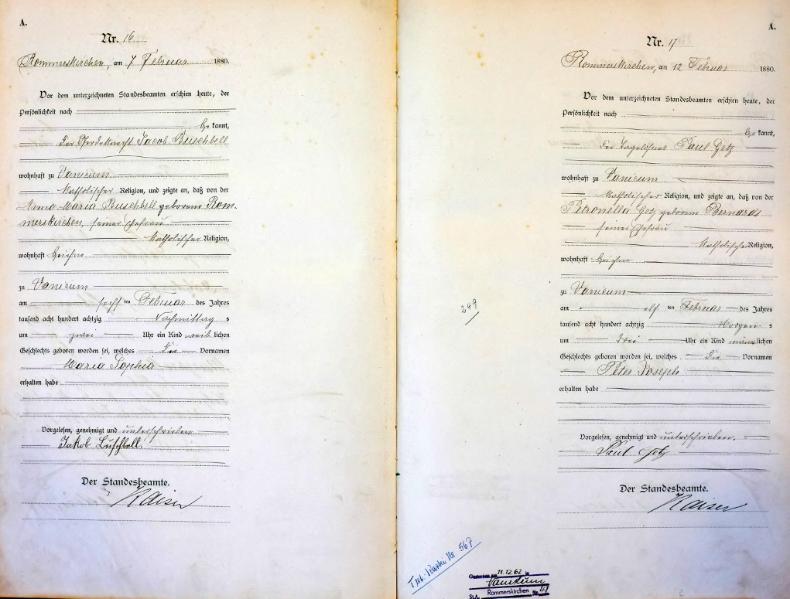 A.
Nr. 16
Rommerskirchen, am 7 Februar 1880.
Vor dem unterzeichneten Standesbeamten erschien heute, der
Persönlichkeit nach
be kannt,
der Jacob Buschbell
wohnhaft zu Vanikum
katholischer Religion, und zeigte an, daß von der
Anna Maria Buschbell geborenen Rom-
merskirchen, seiner Ehefrau
katholischer Religion,
wohnhaft bei ihm
zu Vanikum
am sechs ten Februar des Jahres
tausend acht hundert achtzig Nachmittag s
um zwei Uhr ein Kind weib lichen
Geschlechts geboren worden sei, welches die Vornamen
Maria Sophia
erhalten habe
Vorgelesen, genehmigt und unterschrieben
Jakob Buschbell
Der Standesbeamte.
Kaiser
A.
Nr. 17
Rommerskirchen, am 12 Februar 1880.
Vor dem unterzeichneten Standesbeamten erschien heute, der
Persönlichkeit nach
be kannt,
der Tagelöhner Paul Getz
wohnhaft zu Vanikum
katholischer Religion, und zeigte an, daß von der
Petronella Getz geborenen Bernards
seiner Ehefrau
katholischer Religion,
wohnhaft bei ihm
zu Vanikum
am elf ten Februar des Jahres
tausend acht hundert achtzig Morgens
um drei Uhr ein Kind männ lichen
Geschlechts geboren worden sei, welches die Vornamen
Peter Joseph
erhalten habe
249
Vorgelesen, genehmigt und unterschrieben.
Paul Getz
Der Standesbeamte.
Kaiser
567
11.12.62
Rommerskirchen